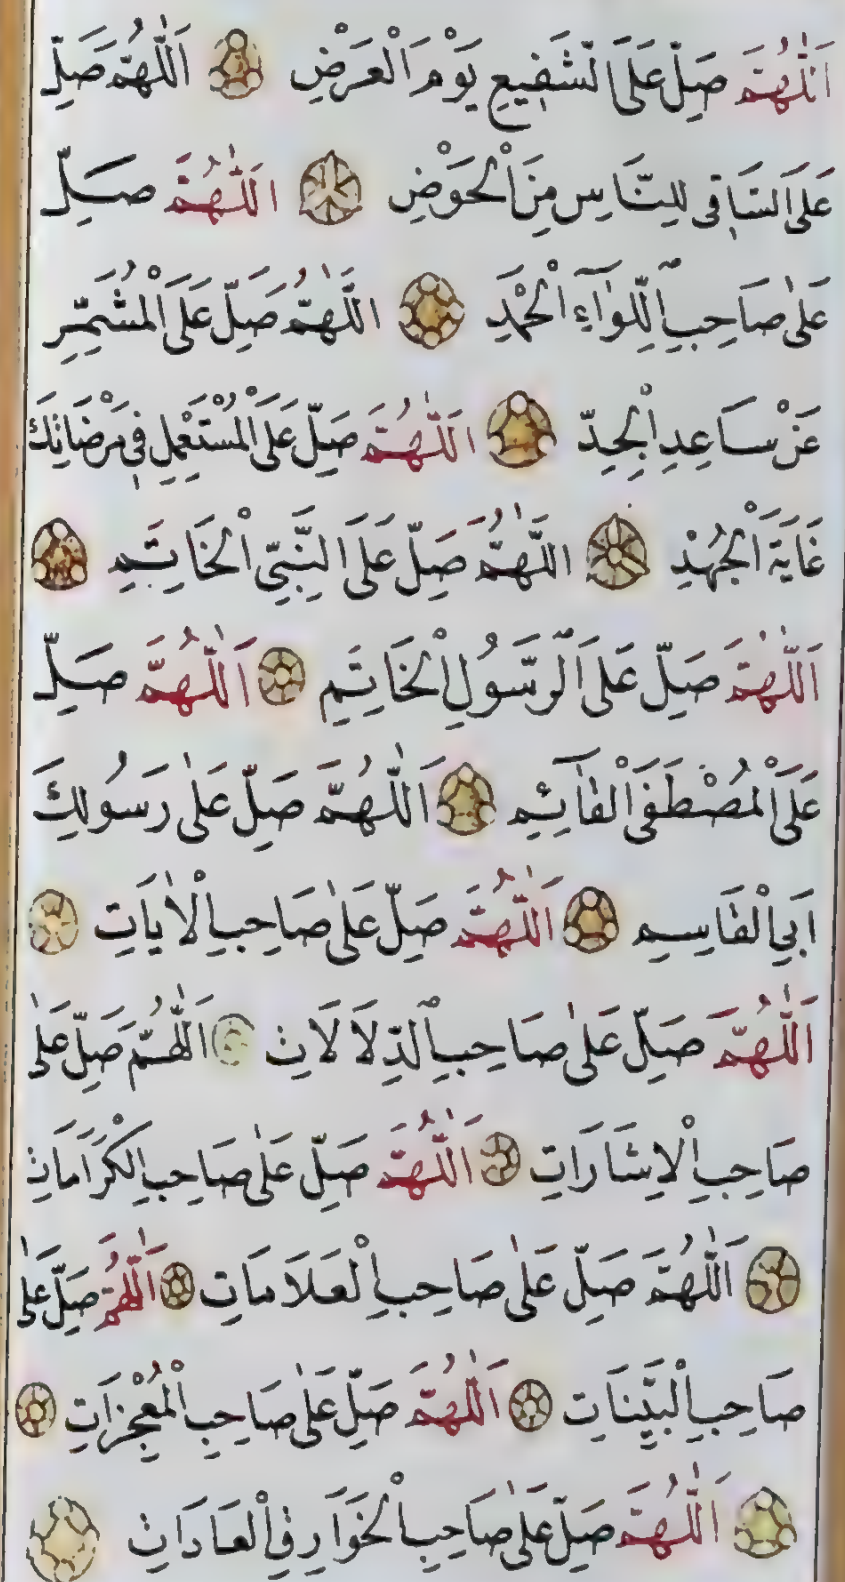 اَللّٰهُمَّ صَلِّ عَلَى الشَّفِيعِ يَوْمَ الْعَرْضِ اَللّٰهُمَّ صَلِّ
عَلَى السَّاقِى لِلنَّاسِ مِنَ الْحَوْضِ اَللّٰهُمَّ صَلِّ
عَلٰى صَاحِبِ اللِّوَآءِ الْحَمْدِ اَللّٰهُمَّ صَلِّ عَلَى الْمُشَمِّرِ
عَنْ سَاعِدِ الْجِدِّ اَللّٰهُمَّ صَلِّ عَلَى الْمُسْتَعْمِلِ فِى مَرْضَاتِكَ
غَايَةَ الْجُهْدِ اَللّٰهُمَّ صَلِّ عَلَى النَّبِىِّ الْخَاتِمِ
اَللّٰهُمَّ صَلِّ عَلَى الرَّسُولِ الْخَاتِمِ اَللّٰهُمَّ صَلِّ
عَلَى الْمُصْطَفَى الْقَآئِمِ اَللّٰهُمَّ صَلِّ عَلٰى رَسُولِكَ
اَبِى الْقَاسِمِ اَللّٰهُمَّ صَلِّ عَلٰى صَاحِبِ الْاٰيَاتِ
اَللّٰهُمَّ صَلِّ عَلٰى صَاحِبِ الدِّلَالَاتِ اَللّٰهُمَّ صَلِّ عَلٰى
صَاحِبِ الْاِشَارَاتِ اَللّٰهُمَّ صَلِّ عَلٰى صَاحِبِ الْكَرَامَاتِ
اَللّٰهُمَّ صَلِّ عَلٰى صَاحِبِ الْعَلَامَاتِ اَللّٰهُمَّ صَلِّ عَلٰى
صَاحِبِ الْبَيِّنَاتِ اَللّٰهُمَّ صَلِّ عَلٰى صَاحِبِ الْمُعْجِزَاتِ
اَللّٰهُمَّ صَلِّ عَلٰى صَاحِبِ الْخَوَارِقِ الْعَادَاتِ